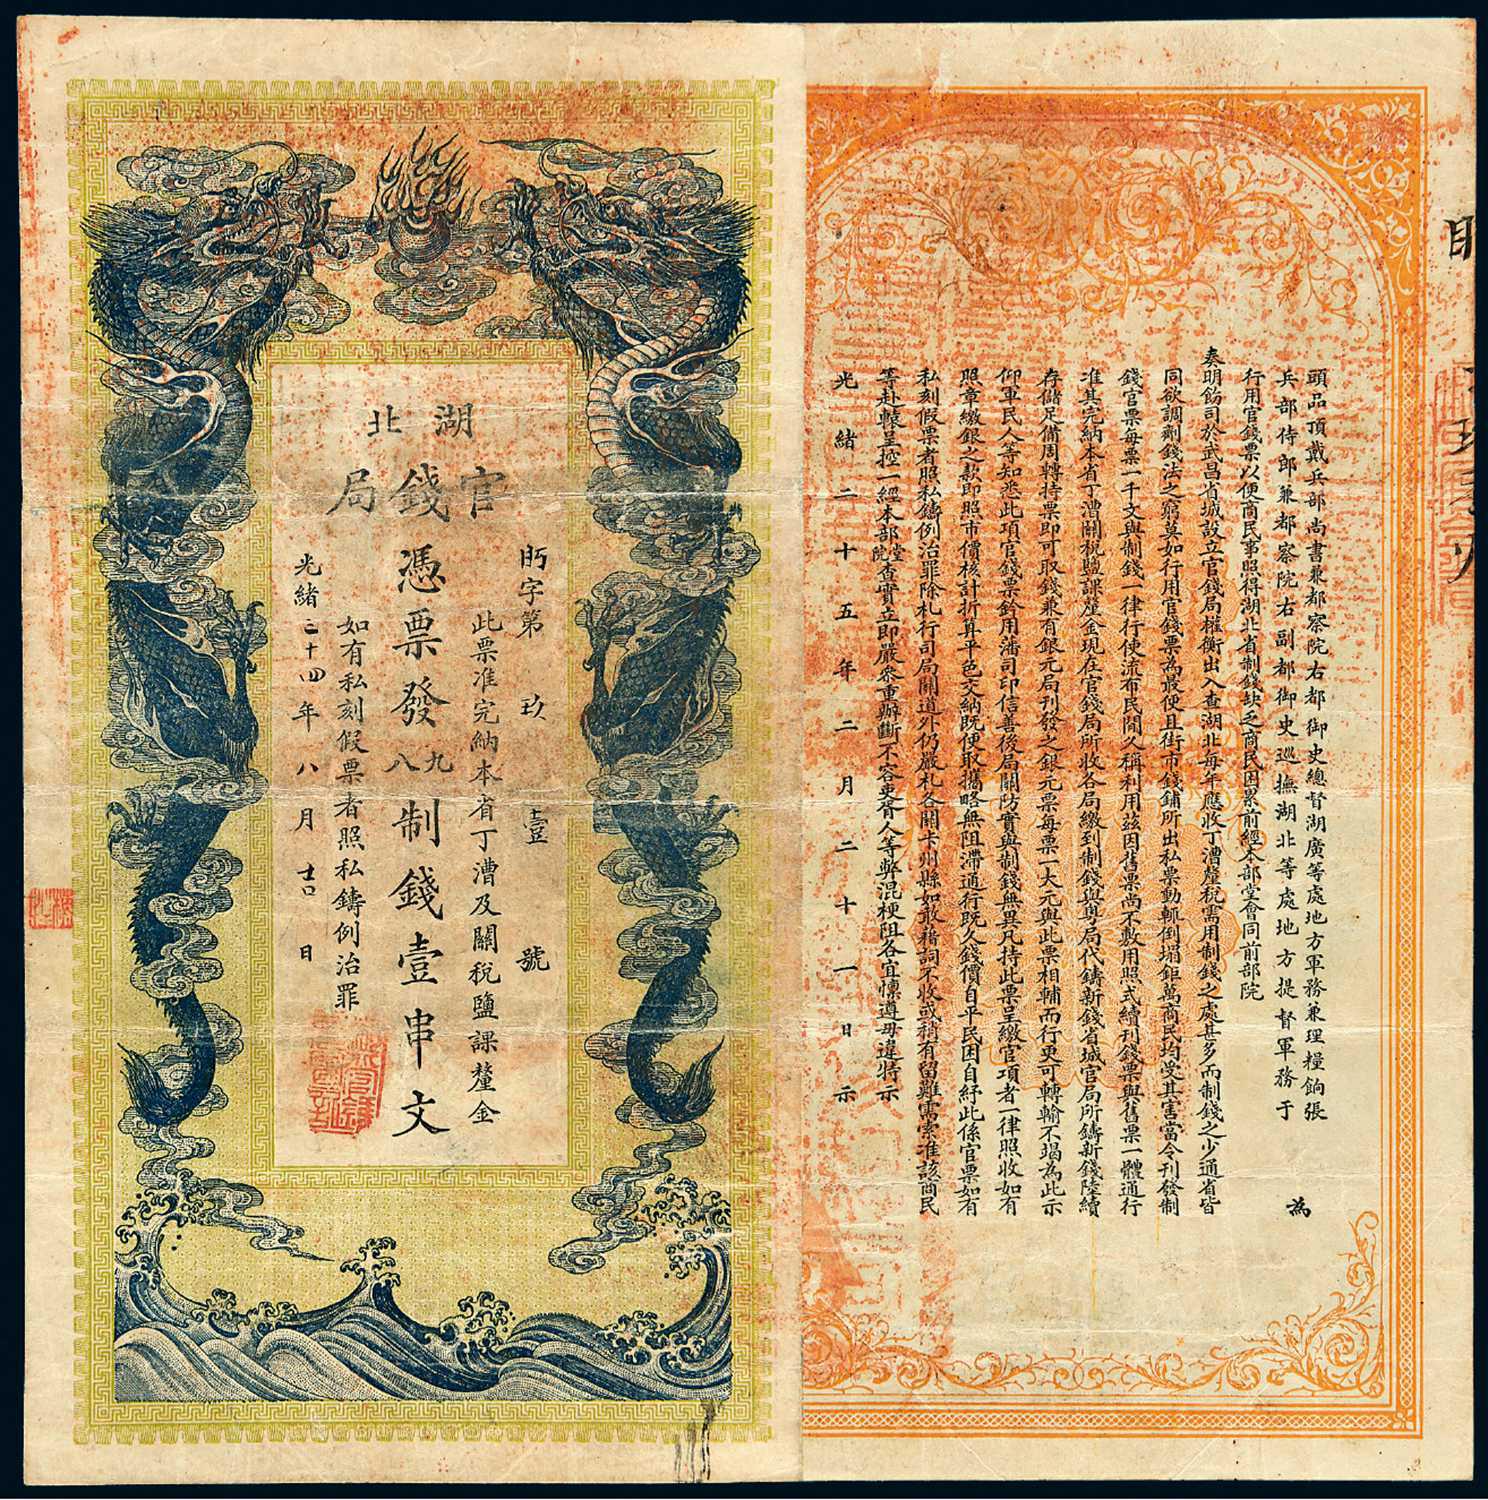 湖北
官錢局
憑票發九八制錢壹串文
昞字第玖壹號
此票准完納本省丁漕及關稅鹽課釐金
如有私刻假票者照私鑄例治罪
光緒二十四年八月吉日
頭品頂戴兵部尚書兼都察院右都御史總督湖廣等處地方軍務兼理糧餉張
兵部侍郎兼都察院右副都御史巡撫湖北等處地方提督軍務于 為
行用官錢票以便商民事照得湖北省制錢缺乏商民困累前經本部堂會同前部院
奏明飭司於武昌省城設立官錢局權衡出入查湖北每年應收丁漕釐稅需用制錢之處甚多而制錢之少通省皆
同欲調劑錢法之窮莫如行用官錢票為最便且街市錢鋪所出私票動輒倒塌鉅萬商民均受其害當令刊發制
錢官票每票一千文與制錢一律行使流布民間久稱利用茲因舊票尚不敷用照式續刊錢票與舊票一體通行
准其完納本省丁漕關稅鹽課釐金現在官錢局所收各局繳到制錢與粵局代鑄新錢省城官局所鑄新錢陸續
存儲足備周轉持票即可取錢兼有銀元局刊發之銀元票每票一大元與此票相輔而行更可轉輸不竭為此示
仰軍民人等知悉此項官錢票鈐用藩司印信善後局關防實與制錢無異凡持此票呈繳官項者一律照收如有
照章繳銀之款即照市價核計折算平色交納既便取攜略無阻滯通行既久錢價自平民困自紓此係官票如有
私刻假票者照私鑄例治罪除札行司局關道外仍嚴札各關卡州縣如敢藉詞不收或稍有留難需索准該商民
等赴轅呈控一經本部堂院查實立即嚴參重辦斷不容吏胥人等弊混梗阻各宜懍遵毋違特示
光緒二十五年二月二十一日示